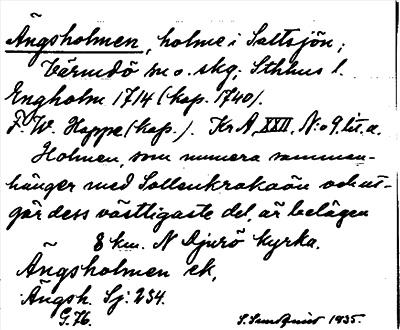 Ängsholmen, holme i Saltsjön;
Värmdö sn o. skg; Sthlms l.
Engholm 1714 (kop. 1740).
F. W. Hoppe (kop.). Kr A, XXII, N:o 9. lit. a.
Holmen, som numera samman-
hänger med Sollenkrokaön och ut-
gör dess västligaste del, är belägen
8 km. N Djurö kyrka.
Ängsholmen ek,
Ängsh. Sj: 234.
G. 76.
S. Sundqvist 1935.